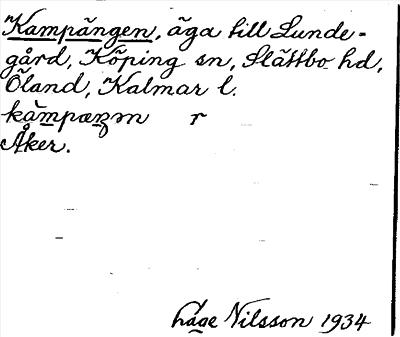 Kampängen, äga till Lunde-
gård, Köping sn, Slättbo hd,
Öland, Kalmar l.
kàmpæŋən r
Åker.
Åke Nilsson 1934